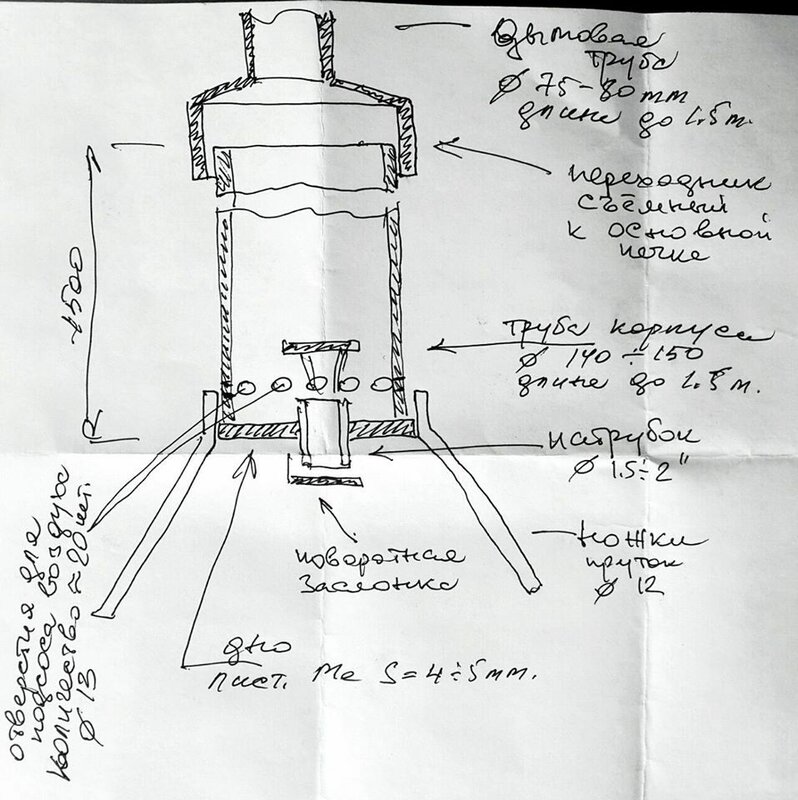 Дымовая
труба
ø 75-80 mm
длина до 1.5 м.
переходник
съёмный
к основной
печке
1500
труба корпуса
ø 140÷150
длина до 1.5 м.
патрубок
ø 1.5÷2"
ножки
пруток
ø 12
поворотная
заслонка
дно
лист. Ме S=4÷5мм.
отверстия для
подсоса воздуха
количество ≈ 20 шт.
ø 13